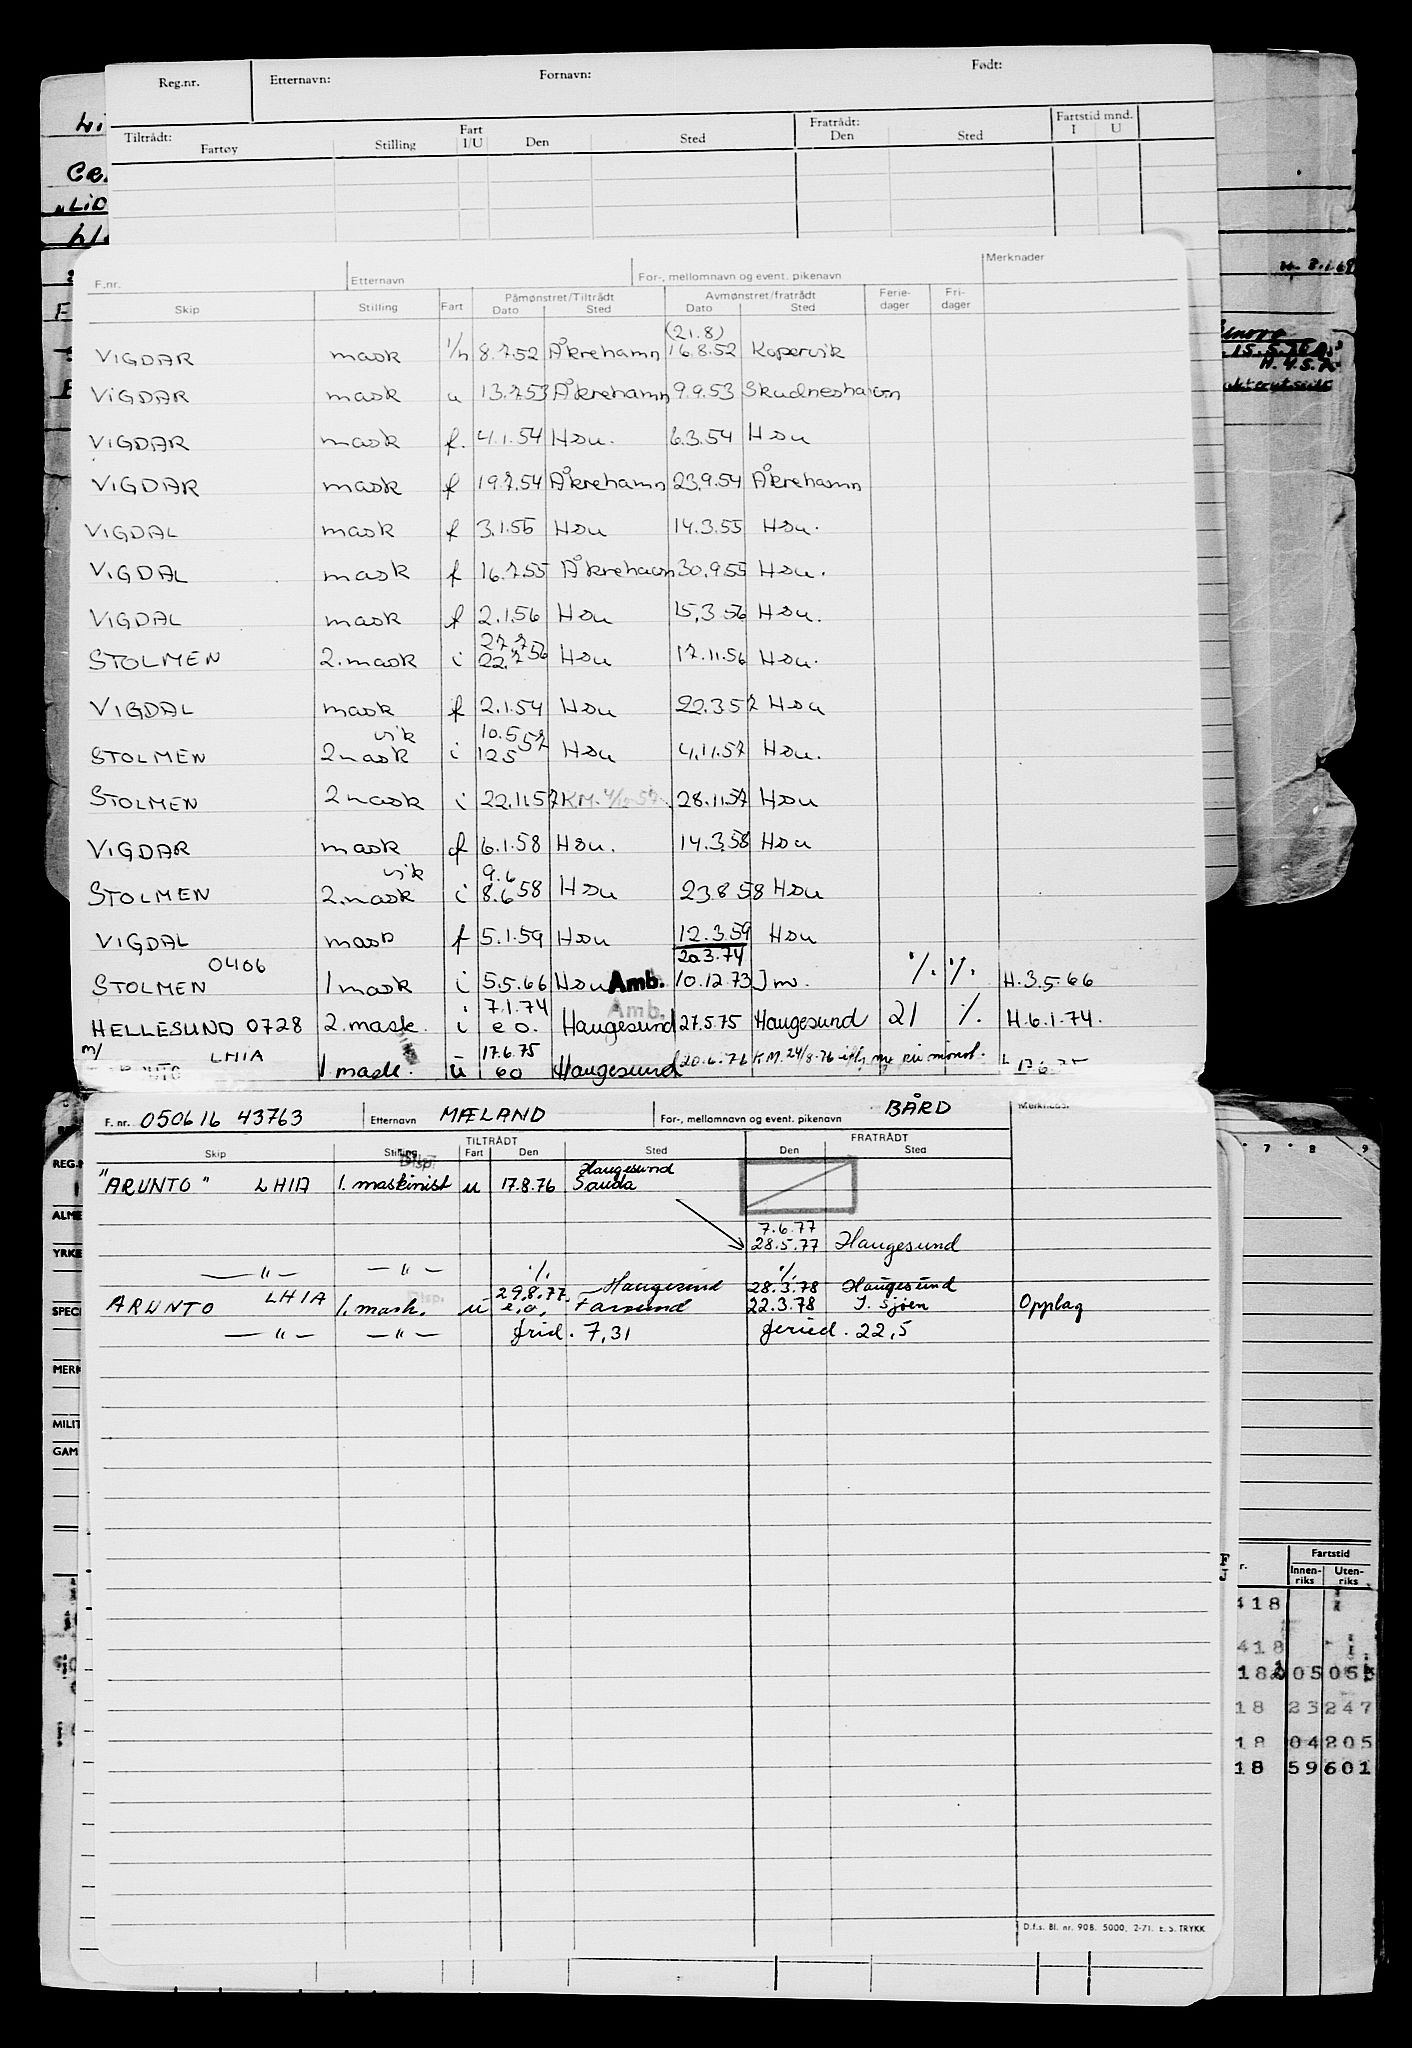 Reg.nr. Etternavn: Fornavn: Født:
Tiltrådt: Fartøy Stilling Fart I/U Den Sted Fratrådt: Den Sted Fartstid mnd. I U
F.nr. Etternavn For-, mellomnavn og event. pikenavn Merknader
Skip Stilling Fart Påmønstret/Tiltrådt Dato Sted Avmønstret/fratrådt Dato Sted Feriedager Fridager
(21.8)
VIGDAR mask 8.7.52 Åkrehamn 16.8.52 Kopervik
VIGDAR mask u 13.7.53 Åkrehamn 9.9.53 Skudneshavn
VIGDAR mask f. 4.1.54 Hsu. 6.3.54 Hsu
VIGDAR mask f 19.7.54 Åkrehamn 23.9.54 Åkrehamn
VIGDAL mask f 3.1.55 Hsu 14.3.55 Hsu.
VIGDAL mask f 16.7.55 Åkrehavn 30.9.55 Hsu.
VIGDAL mask f 2.1.56 Hsu 15.3.56 Hsu.
27.7
STOLMEN 2.mask i 22.7 56 Hsu 17.11.56 Hsu.
VIGDAL mask f 2.1.57 Hsu 22.3.57 Hsu
vik 10.5
STOLMEN 2 mask i 12.5 57 Hsu 4.11.57 Hsu.
STOLMEN 2 mask i 22.11.57 K.M. 28.11.57 Hsu
VIGDAR mask f 6.1.58 Hsu. 14.3.58 Hsu
vik 9.6
STOLMEN 2.mask i 8.6 58 Hsu 23.8.58 Hsu
VIGDAL mask f 5.1.59 Hsu 12.3.59 Hsu
0406 20.3.74
STOLMEN 1 mask i 5.5.66 Hsu Amb. 10.12.73 Jm. ·/. ·/. H.3.5.66
i 7.1.74 Amb.
HELLESUND 0728 2. mask. i e o. Haugesund 27.5.75 Haugesund 21 ·/. H.6.1.74.
m/ LHIA 17.6.75
1 mask. u eo Haugesund 20.6.76 K.M. 24/8-76
F. nr. 050616 43763 Etternavn MÆLAND For-, mellomnavn og event. pikenavn BÅRD Merknader
TILTRÅDT FRATRÅDT
Skip Stilling Fart Den Sted Den Sted
Disp.
Haugesund
"ARUNTO" LHIA 1. maskinist u 17.8.76 Sauda
7.6.77
28.5.77 Haugesund
— " — — " — ·/. ·/.
29.8.77 Haugesund 28.3.78 Haugesund
ARUNTO LHIA 1. mask. Disp. u e.o. Farsund 22.3.78 I. sjøen Opplag
— " — — " — frid. 7,31 feried. 22,5
D.f.s. Bl. nr. 908. 5000. 2-71. E. S. TRYKK
REG.
ALME
YRKE
SPECI
MERK
MILIT
GAM
7 8 9
Fartstid
Innenriks Utenriks
418
418
18 05 05
18 23 247
18 04 205
18 59 601